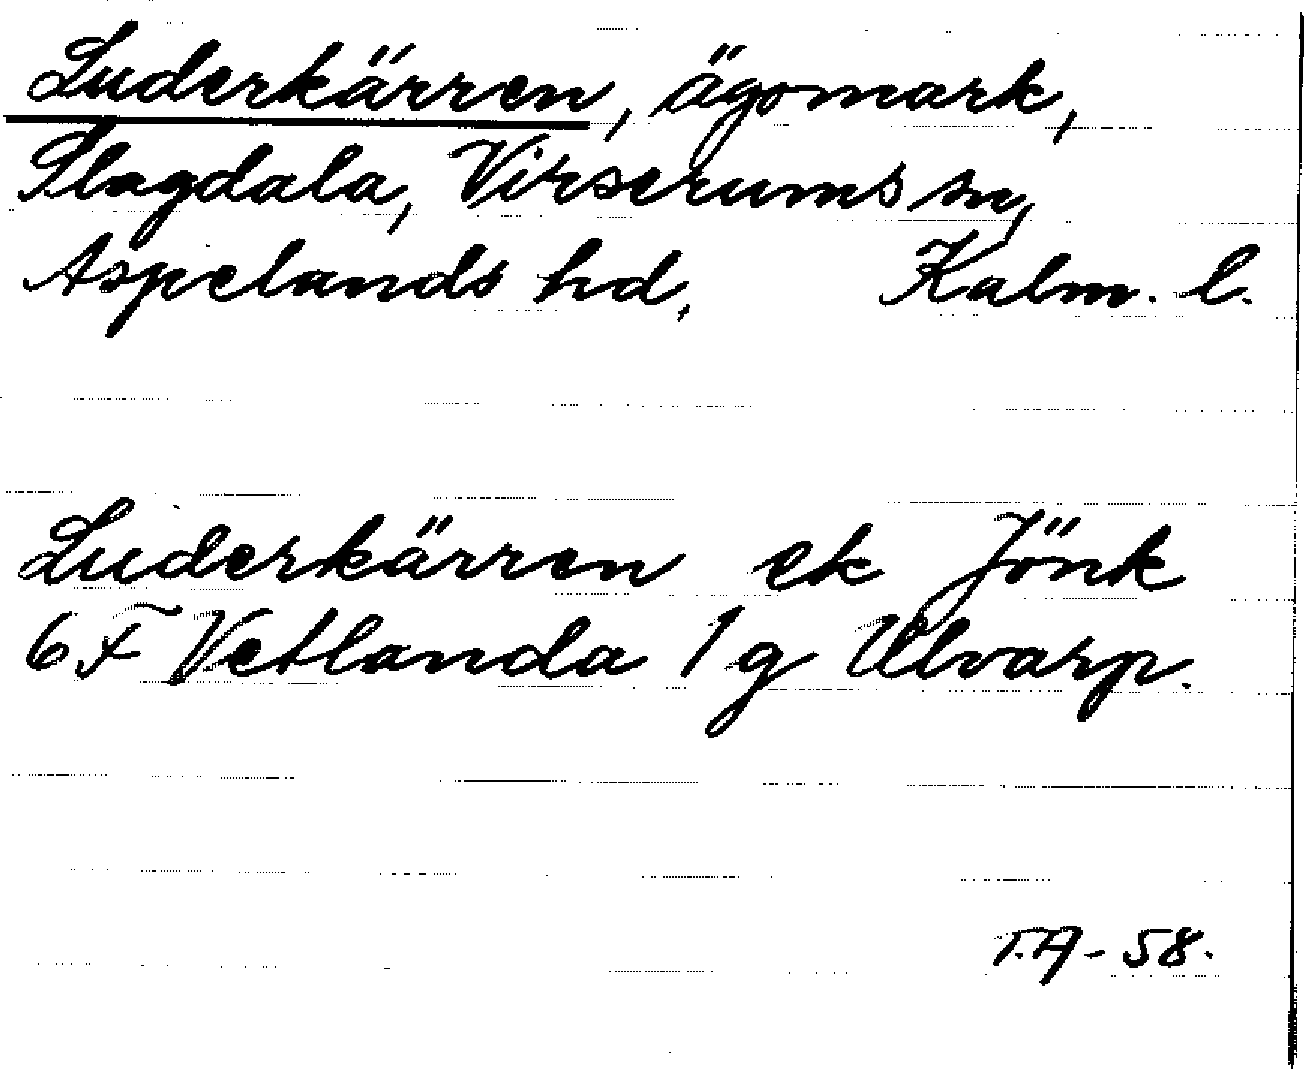 Luderkärren, ägomark,
Slagdala, Virserums sn,
Aspelands hd, Kalm. l.
Luderkärren ek Jönk
6 F Vetlanda 1 g Ulvarp.
T.A - 58.